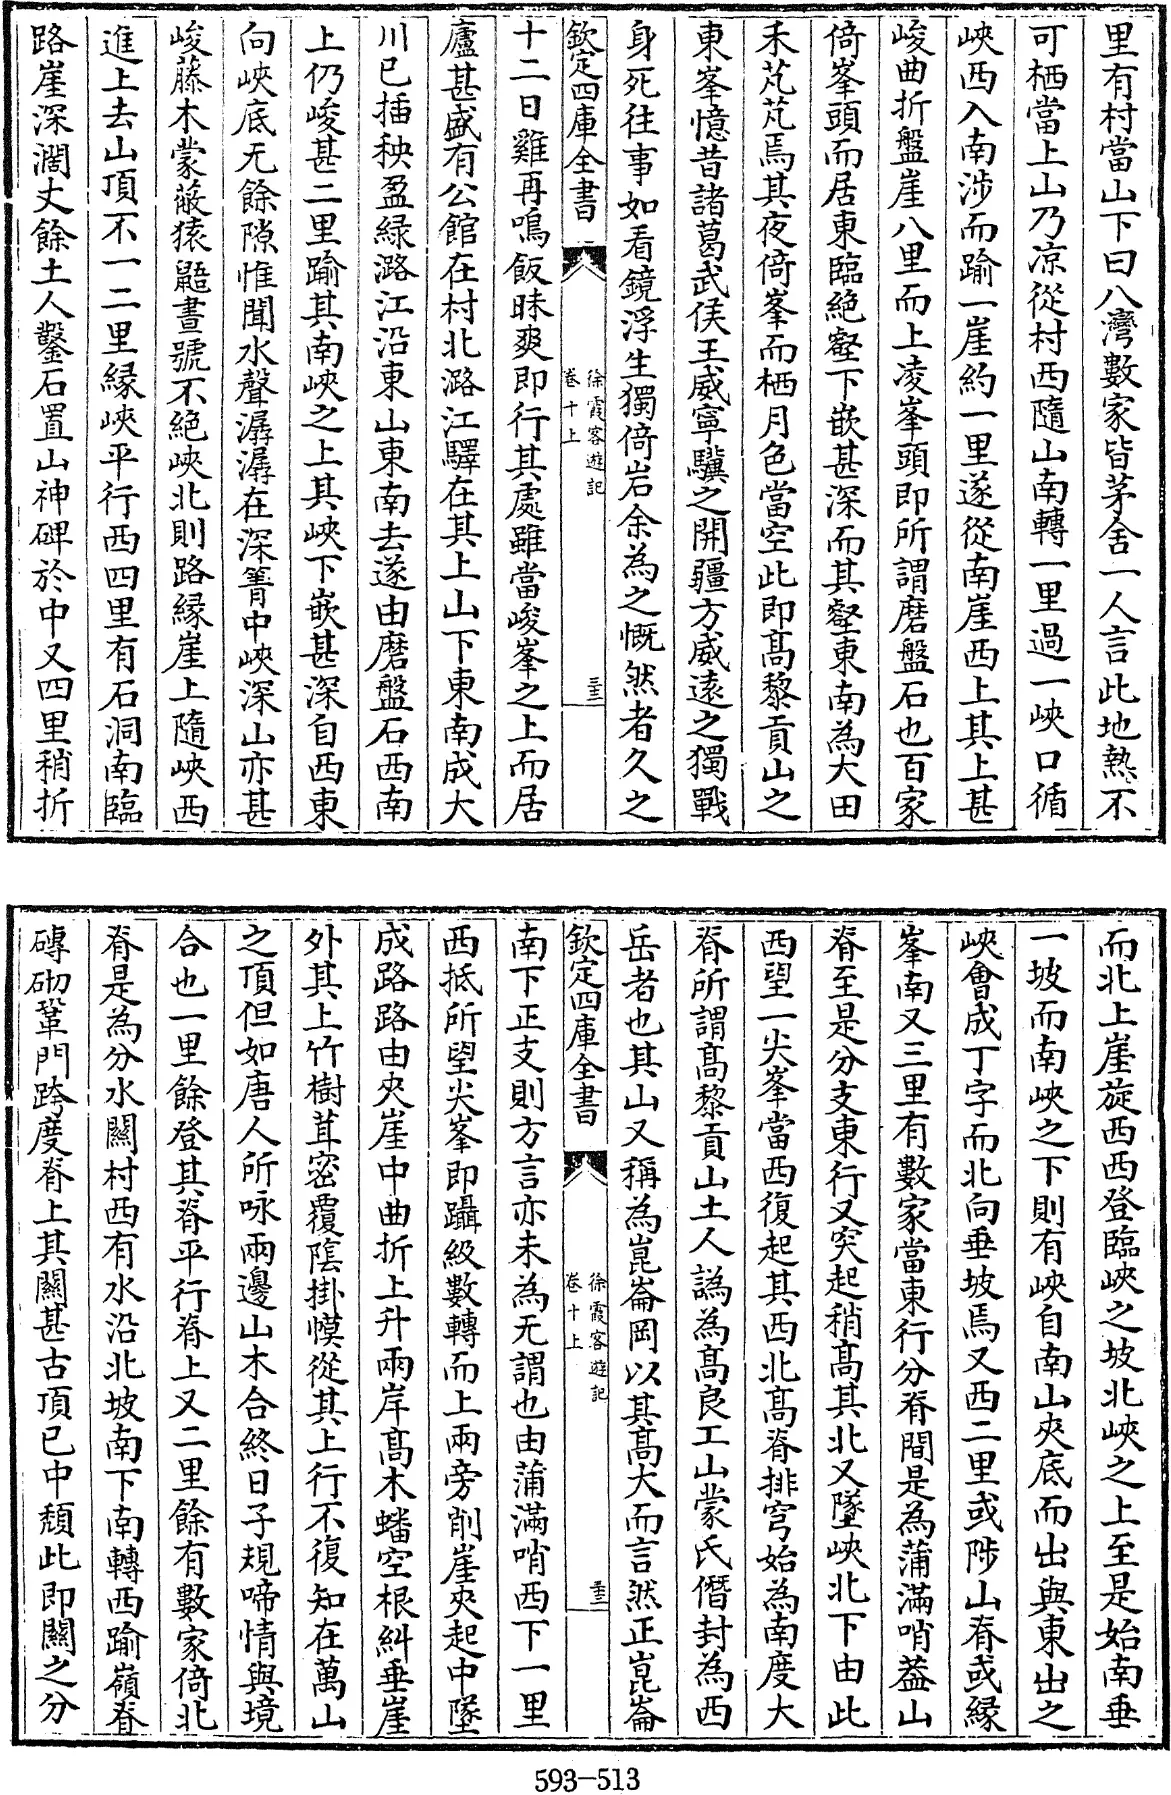 里有村當山下曰八灣數家皆茅舍一人言此地熱不
可栖當上山乃凉從村西隨山南轉一里過一峽口循
峽西入南涉而踰一崖約一里遂從南崖西上其上甚
峻曲折盤崖八里而上凌峯頭即所謂磨盤石也百家
倚峯頭而居東臨絶壑下嵌甚深而其壑東南為大田
禾芃芃焉其夜倚峯而栖月色當空此即髙黎貢山之
東峯憶昔諸葛武侯王威寧驥之開疆方威遠之獨戰
身死往事如看鏡浮生獨倚岩余為之慨然者久之
欽定四庫全書
徐霞客遊記
卷十上
三三
十二日雞再鳴飯昧爽即行其處雖當峻峯之上而居
廬甚盛有公館在村北潞江驛在其上山下東南成大
川已插秧盈緑潞江沿東山東南去遂由磨盤石西南
上仍峻甚二里踰其南峽之上其峽下嵌甚深自西東
向峽底无餘隙惟聞水聲潺潺在深箐中峽深山亦甚
峻藤木蒙蔽猿鼯晝號不絶峽北則路縁崖上隨峽西
進上去山頂不一二里縁峽平行西四里有石洞南臨
路崖深濶丈餘土人鑿石置山神碑於中又四里稍折
而北上崖旋西西登臨峽之坡北峽之上至是始南垂
一坡而南峽之下則有峽自南山夾底而出與東出之
峽會成丁字而北向垂坡焉又西二里或陟山脊或縁
峯南又三里有數家當東行分脊間是為蒲滿哨葢山
脊至是分支東行又突起稍髙其北又墜峽北下由此
西望一尖峯當西復起其西北髙脊排穹始為南度大
脊所謂髙黎貢山土人譌為髙良工山蒙氏僭封為西
岳者也其山又稱為崑崙岡以其髙大而言然正崑崙
欽定四庫全書
徐霞客遊記
卷十上
南下正支則方言亦未為无謂也由蒲滿哨西下一里
西抵所望尖峯即躡級數轉而上兩旁削崖夾起中墜
成路路由夾崖中曲折上升兩岸髙木蟠空根糾垂崖
外其上竹樹茸密覆陰掛幙從其上行不復知在萬山
之頂但如唐人所咏兩邊山木合終日子規啼情與境
合也一里餘登其脊平行脊上又二里餘有數家倚北
脊是為分水關村西有水沿北坡南下南轉西踰嶺脊
磚砌鞏門跨度脊上其關甚古頂已中頽此即關之分
593-513